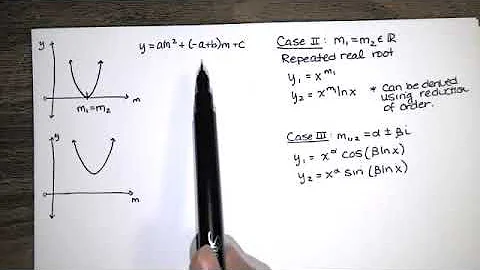 y
m₁=m₂
m
y
m
y = am² + (-a+b)m + c
Case II: m₁=m₂ ∈ ℝ
Repeated real root
y₁ = x^m₁
y₂ = x^m ln x * Can be derived
using reduction
of order.
Case III: m₁,₂ = α ± βi
y₁ = x^α cos(β ln x)
y₂ = x^α sin(β ln x)